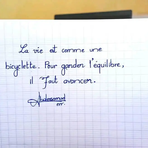 La vie est comme une
bicyclette. Pour garder l'équilibre,
il faut avancer.